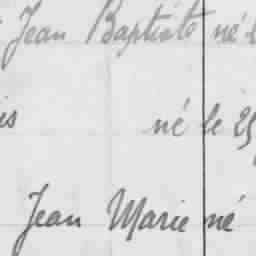 Jean Baptiste né
is né le 25
Jean Marie né